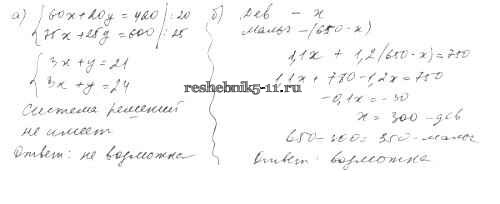 а) { 60x + 20y = 420 | : 20
75x + 25y = 600 | : 25
{ 3x + y = 21
3x + y = 24
система решений
не имеет
Ответ: не возможна
б) Дев – x
мальч – (650 - x)
1,1x + 1,2(650 - x) = 750
1,1x + 780 - 1,2x = 750
-0,1x = -30
x = 300 - дев
650 - 300 = 350 - мальч
Ответ: возможна
reshebnik5-11.ru